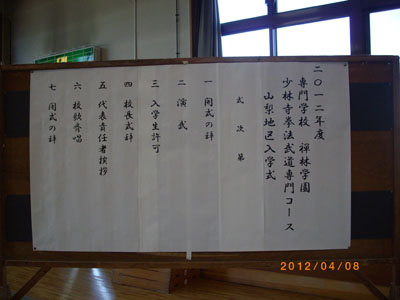 二〇一二年度
専門学校 禅林学園
少林寺拳法武道専門コース
山梨地区入学式
式次第
一 開式の辞
二 演武
三 入学生許可
四 校長式辞
五 代表責任者挨拶
六 校歌斉唱
七 閉式の辞
2012/04/08